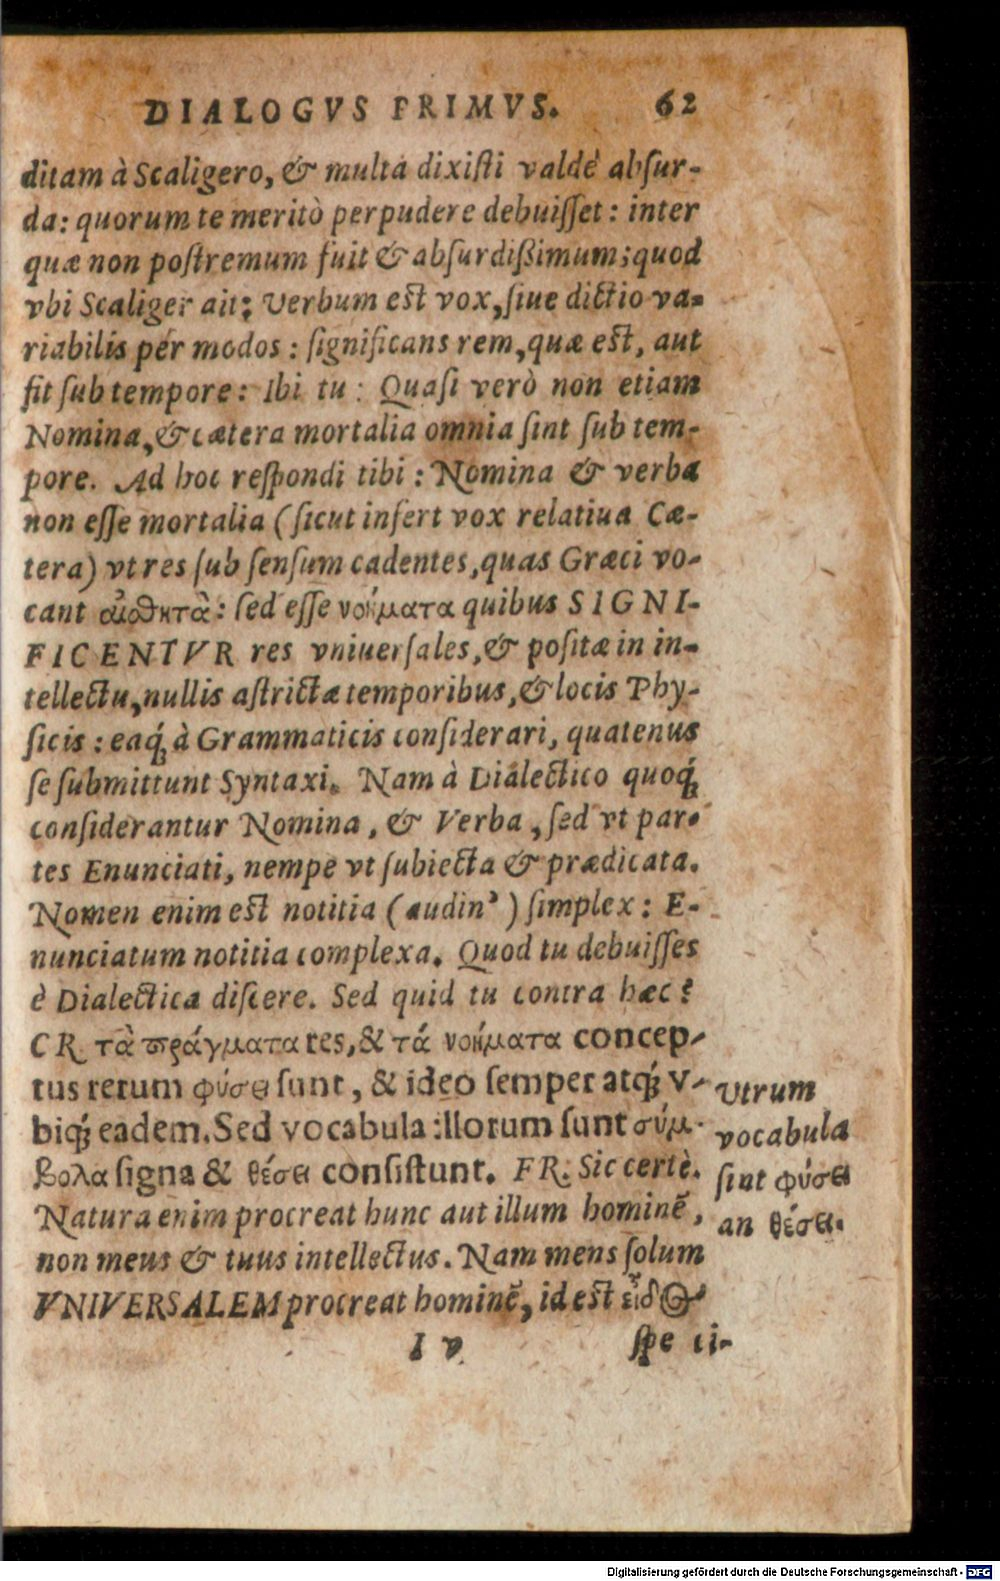 DIALOGVS PRIMVS. 62
ditam à Scaligero, & multa dixiſti valdè abſur-
da: quorum te meritò perpudere debuiſſet: inter
quæ non poſtremum fuit & abſurdißimum; quod
vbi Scaliger ait; Verbum eſt vox, ſiue dictio va-
riabilis per modos: ſignificans rem, quæ eſt, aut
fit ſub tempore: Ibi tu: Quaſi verò non etiam
Nomina, & cætera mortalia omnia ſint ſub tem-
pore. Ad hoc reſpondi tibi: Nomina & verba
non eſſe mortalia (ſicut infert vox relatiua Cæ-
tera) vt res ſub ſenſum cadentes, quas Græci vo-
cant αἰσθητὰ: ſed eſſe νοήματα quibus SIGNI-
FICENTVR res vniuerſales, & poſitæ in in-
tellectu, nullis aſtrictæ temporibus, & locis Phy-
ſicis: eaq́; à Grammaticis conſiderari, quatenus
ſe ſubmittunt Syntaxi. Nam à Dialectico quoq́;
conſiderantur Nomina, & Verba, ſed vt par-
tes Enunciati, nempe vt ſubiecta & prædicata.
Nomen enim eſt notitia (audin') ſimplex: E-
nunciatum notitia complexa. Quod tu debuiſſes
è Dialectica diſcere. Sed quid tu contra hæc?
CR. τὰ πράγματα res, & τά νοήματα concep-
tus rerum φύσει ſunt, & ideo ſemper atq́; v-
biq́; eadem. Sed vocabula illorum ſunt σύμ-
βολα ſigna & θέσει conſiſtunt. FR. Sic certè.
Natura enim procreat hunc aut illum hominē,
non meus & tuus intellectus. Nam mens ſolum
VNIVERSALEM procreat hominē, id eſt εἶδος
I v ſpe ci-
Vtrum
vocabula
ſint φύσει
an θέσει.
Digitalisierung gefördert durch die Deutsche Forschungsgemeinschaft - DFG